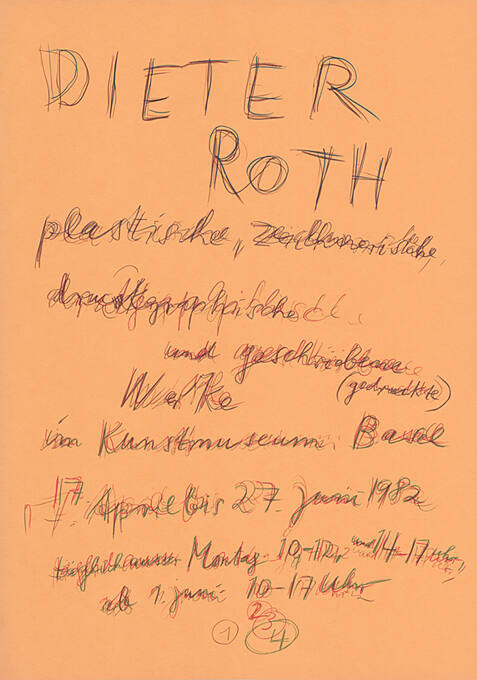 DIETER
ROTH
plastische, zeichnerische,
druckgraphische
und geschriebene
Werke (gedruckte)
im Kunstmuseum Basel
17. April bis 27. Juni 1982
täglich ausser Montag 10-12, und 14-17 Uhr,
ab 1. Juni 10-17 Uhr
1 4